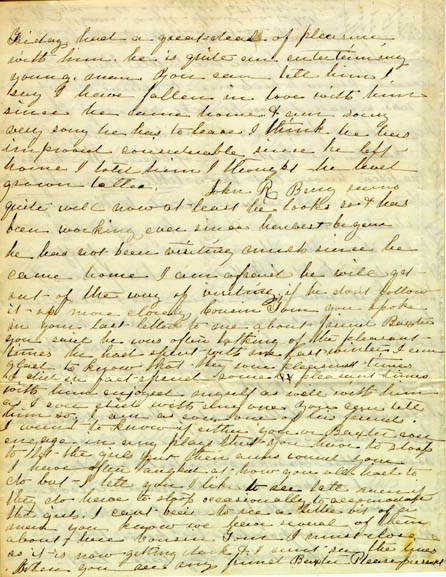 Friday, had a great deal of pleasure
with him, he is quite an entertaining
young man You can tell him I
say I have fallen in love with him
since he came home & am sorry
very sorry he has to leave. I think he has
improved considerably since he left
home I told him I thought he had
grown taller. John R Berry seems
quite well now at least he looks so & has
been working ever since harvest begun
he has not been visiting much since he
came home I am afraid he will get
out of the way of visiting if he dont follow
it up more closely Cousin Tom you spoke
in your last letter to me about friend Baxter
you said he was often talking of the pleasant
times he had spent with us last winter I am
glad to know that they were pleasant times
in fact spend some pleasant times
with him enjoyed myself as well with him
as I ever did with any one. You can tell
him so, I am as ever his friend.
I want to know if either you or Baxter can
engage in any plays that you have to stoop
to let the girls put their arms round you
I have often laughed at how you all had to
do but I tell you I like to see
the have to stoop occasionally to accommodate
the girls. I cant bear to see a little bit of a
man you know we have several of them
about here Cousin Tom I must close
as it is now getting dark & I cant see the lines
When you see my friend Baxter Please